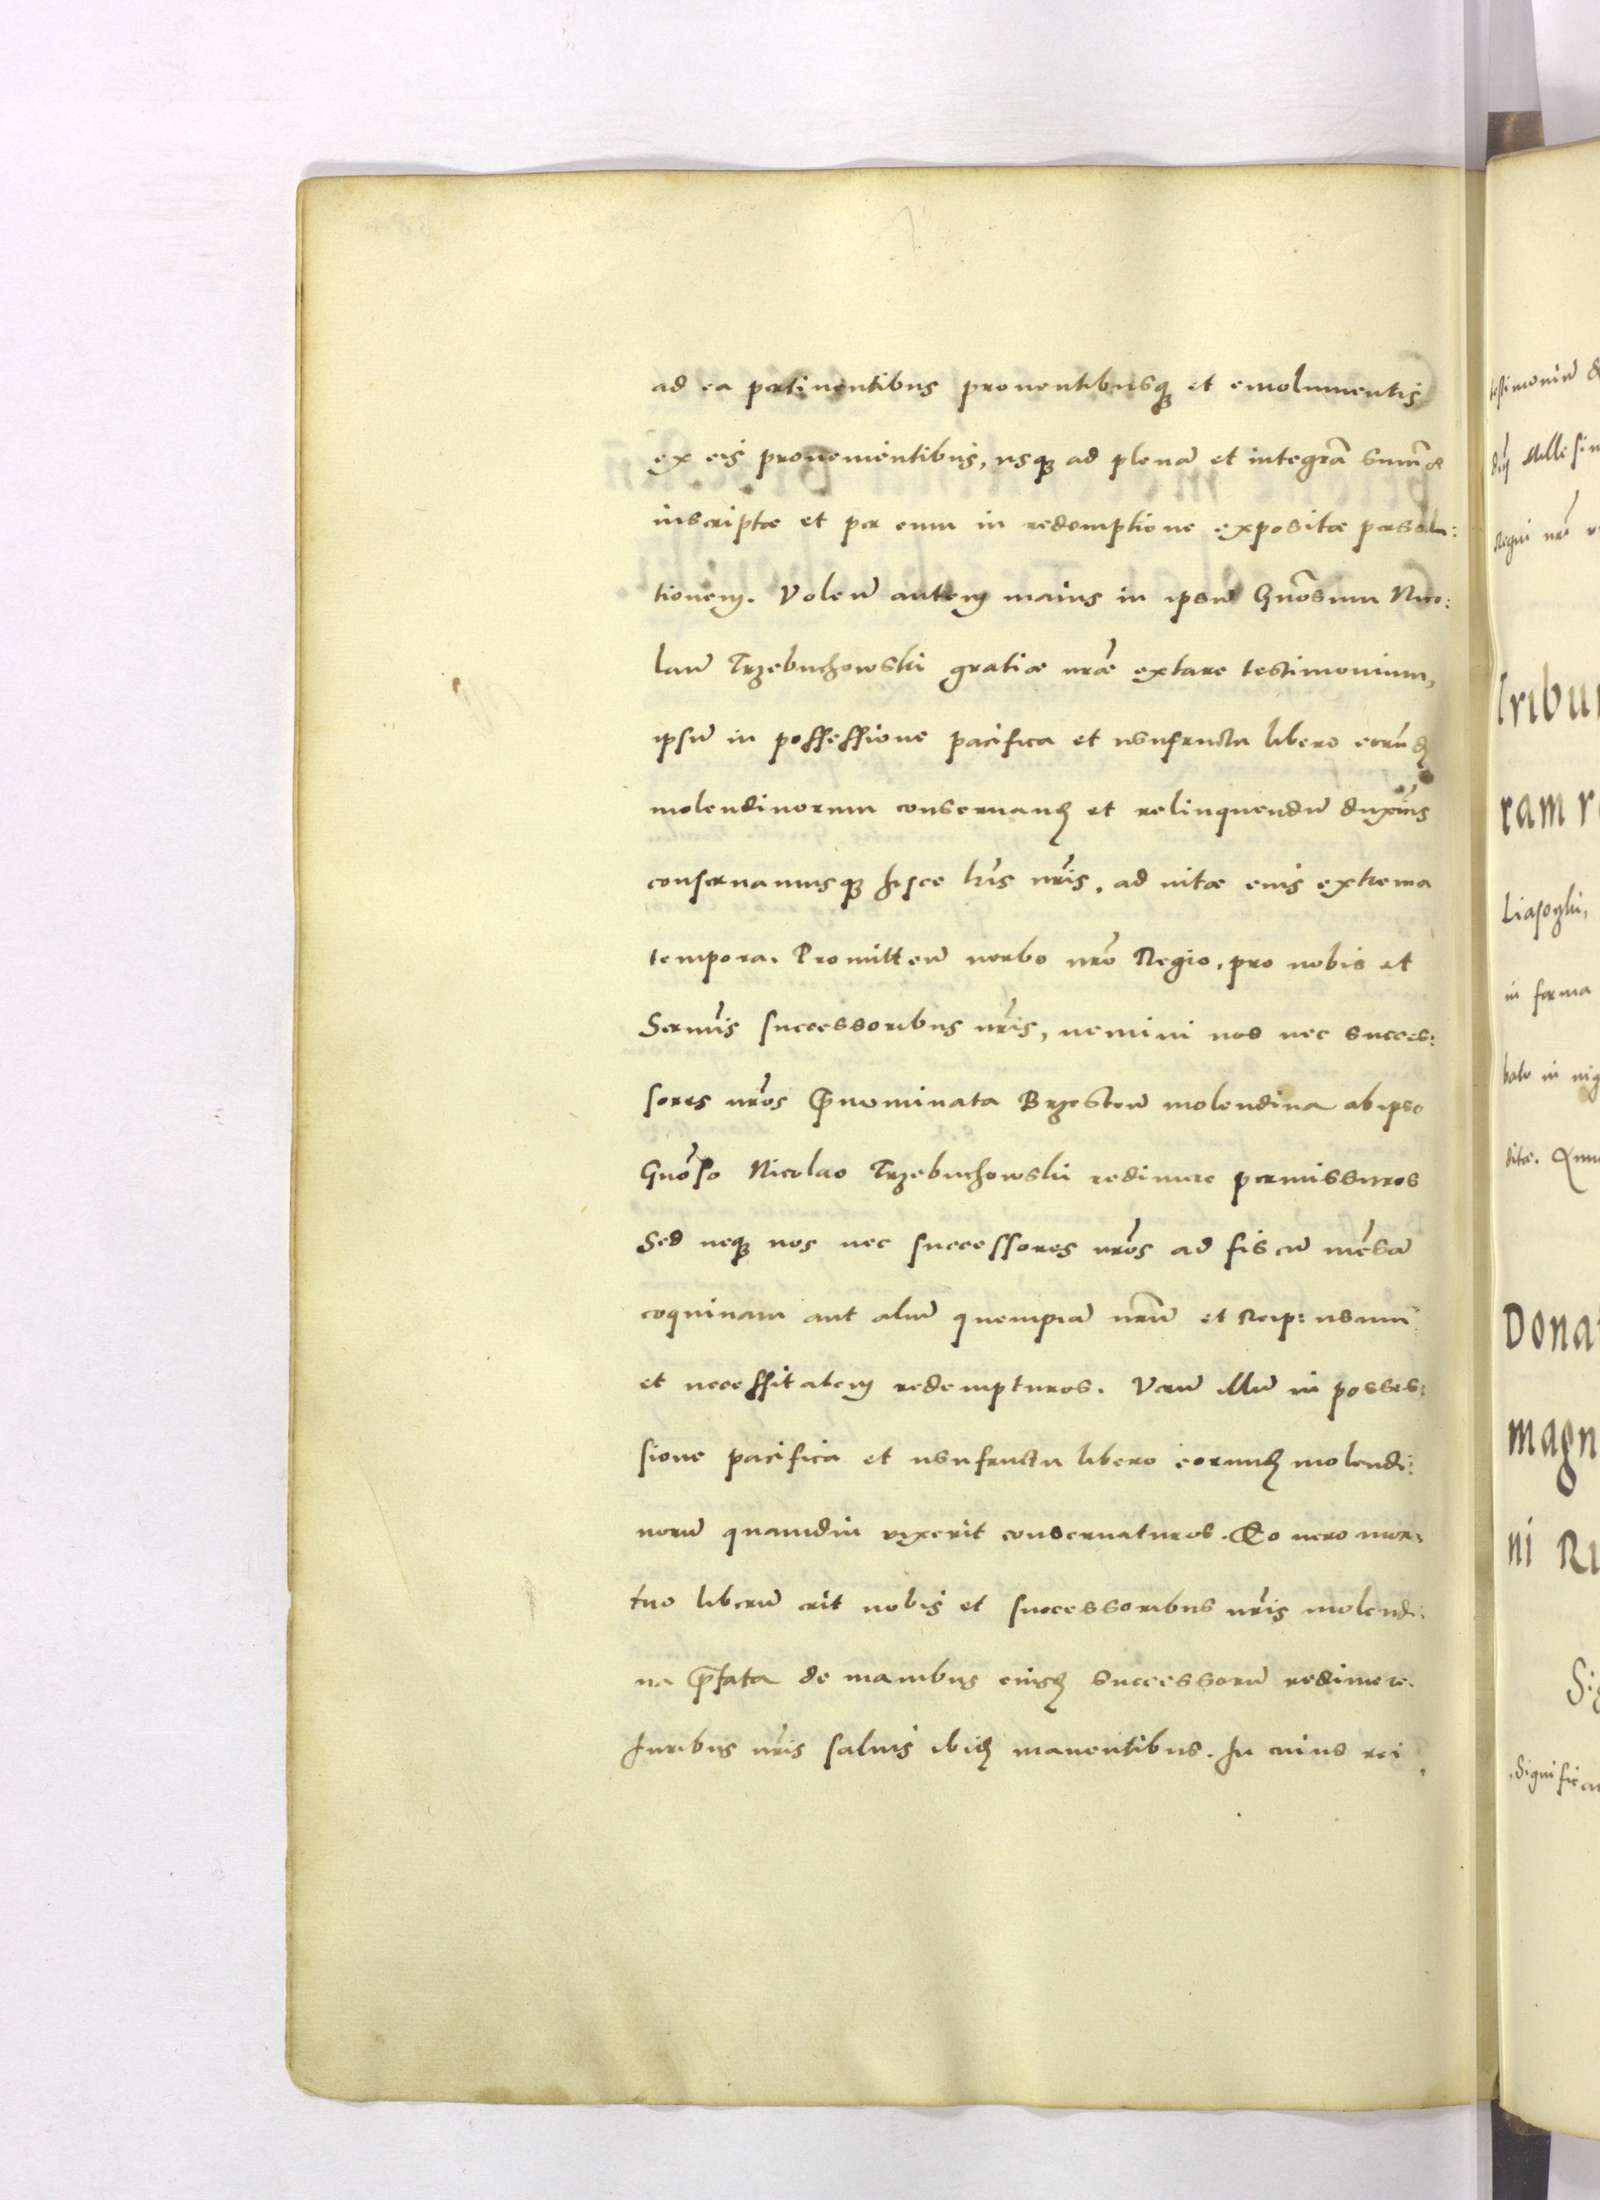 ad ea pertinentibus prouentibusq; et emolumentis
ex eis prouenientibus, usq; ad plenā et integrā summæ
inscriptæ et per eum in redemptione expositæ persolu:
tionem. Volen̄ autem maius in ipsū Gn̄osum Nico:
laū Trzebuchowski gratiæ nr̄æ extare testimonium,
ipsū in possessione pacifica et usufructu libero eorūdē
molendinorum conseruand et relinquendū duxim̄s
conseruamusq; hisce lr̄is nr̄is, ad uitæ eius extrema
tempora. Promitten̄ uerbo nr̄o Regio, pro nobis et
Sermīs successoribus nr̄is, nemini nos nec succes:
sores nr̄os p̄nominata Brzesten̄ molendina ab ipso
Gn̄oso Nicolao Trzebuchowski redimere permissuros
Sed neq; nos nec successores nr̄os ad fiscū mēsā
coquinam aut aliū quempiā nr̄um et Reip: usum
et necessitatem redempturos. Verū illū in posses:
sione pacifica et usufructu libero eorund molendi:
norū quamdiu uixerit conseruaturos. Eo uero mor:
tuo liberū erit nobis et successoribus nr̄is molendi:
na p̄fata de manibus eiusd successorū redimere.
Iuribus nr̄is saluis ibid manentibus. In cuius rei
testimoniū
Mille sim
Regni nr̄i
Tribu
ram r
in forma
ditæ.
Dona
magn
ni
Significa